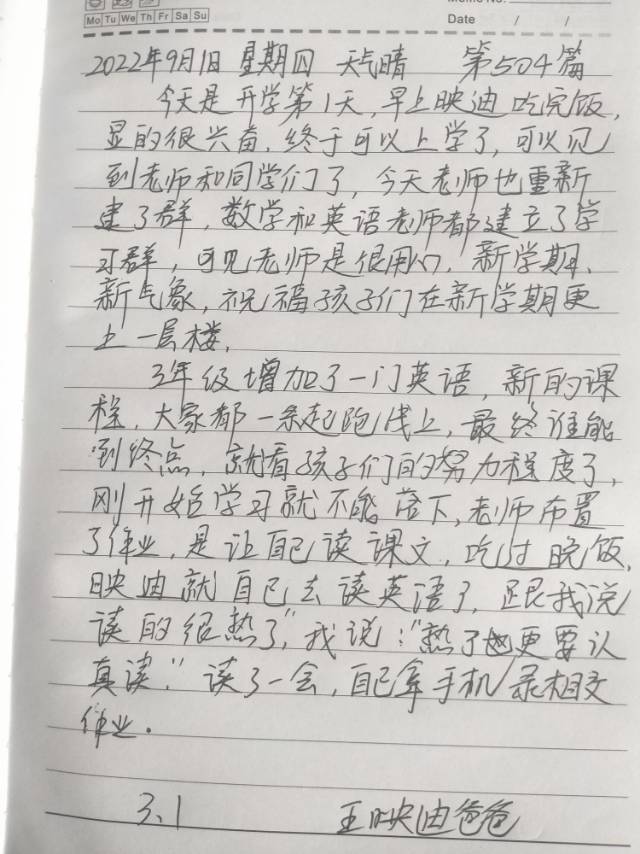 Mo Tu We Th Fr Sa Su
Date / /
2022年9月1日 星期四 天气晴 第504篇
今天是开学第1天,早上映迪吃完饭,
显的很兴奋.终于可以上学了,可以见
到老师和同学们了,今天老师也重新
建了群,数学和英语老师都建立了学
习群,可见老师是很用心,新学期、
新气象,祝福孩子们在新学期更
上一层楼,
3年级增加了一门英语,新的课
程,大家都一条起跑线上,最终谁能
到终点,就看孩子们的努力程度了,
刚开始学习就不能落下,老师布置
了作业,是让自己读课文,吃过晚饭,
映迪就自己去读英语了,跟我说
读的很熟了",我说:"熟了也更要认
真读."读了一会,自己拿手机录相交
作业.
3.1 王映迪爸爸